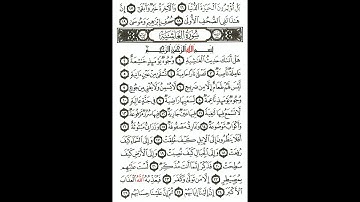 بَلْ تُؤْثِرُونَ الْحَيَاةَ الدُّنْيَا ۝ وَالْآخِرَةُ خَيْرٌ وَأَبْقَىٰ ۝ إِنَّ
هَٰذَا لَفِي الصُّحُفِ الْأُولَىٰ ۝ صُحُفِ إِبْرَاهِيمَ وَمُوسَىٰ ۝
سُورَةُ الْغَاشِيَةِ
بِسْمِ اللَّهِ الرَّحْمَٰنِ الرَّحِيمِ
هَلْ أَتَاكَ حَدِيثُ الْغَاشِيَةِ ۝ وُجُوهٌ يَوْمَئِذٍ خَاشِعَةٌ ۝
عَامِلَةٌ نَّاصِبَةٌ ۝ تَصْلَىٰ نَارًا حَامِيَةً ۝ تُسْقَىٰ مِنْ عَيْنٍ آنِيَةٍ ۝
لَّيْسَ لَهُمْ طَعَامٌ إِلَّا مِن ضَرِيعٍ ۝ لَّا يُسْمِنُ وَلَا يُغْنِي مِن جُوعٍ ۝
وُجُوهٌ يَوْمَئِذٍ نَّاعِمَةٌ ۝ لِّسَعْيِهَا رَاضِيَةٌ ۝ فِي جَنَّةٍ عَالِيَةٍ ۝
لَّا تَسْمَعُ فِيهَا لَاغِيَةً ۝ فِيهَا عَيْنٌ جَارِيَةٌ ۝ فِيهَا سُرُرٌ مَّرْفُوعَةٌ ۝
وَأَكْوَابٌ مَّوْضُوعَةٌ ۝ وَنَمَارِقُ مَصْفُوفَةٌ ۝ وَزَرَابِيُّ مَبْثُوثَةٌ ۝
أَفَلَا يَنظُرُونَ إِلَى الْإِبِلِ كَيْفَ خُلِقَتْ ۝ وَإِلَى السَّمَاءِ كَيْفَ
رُفِعَتْ ۝ وَإِلَى الْجِبَالِ كَيْفَ نُصِبَتْ ۝ وَإِلَى الْأَرْضِ كَيْفَ
سُطِحَتْ ۝ فَذَكِّرْ إِنَّمَا أَنتَ مُذَكِّرٌ ۝ لَّسْتَ عَلَيْهِم
بِمُصَيْطِرٍ ۝ إِلَّا مَن تَوَلَّىٰ وَكَفَرَ ۝ فَيُعَذِّبُهُ اللَّهُ الْعَذَابَ
الْأَكْبَرَ ۝ إِنَّ إِلَيْنَا إِيَابَهُمْ ۝ ثُمَّ إِنَّ عَلَيْنَا حِسَابَهُم ۝